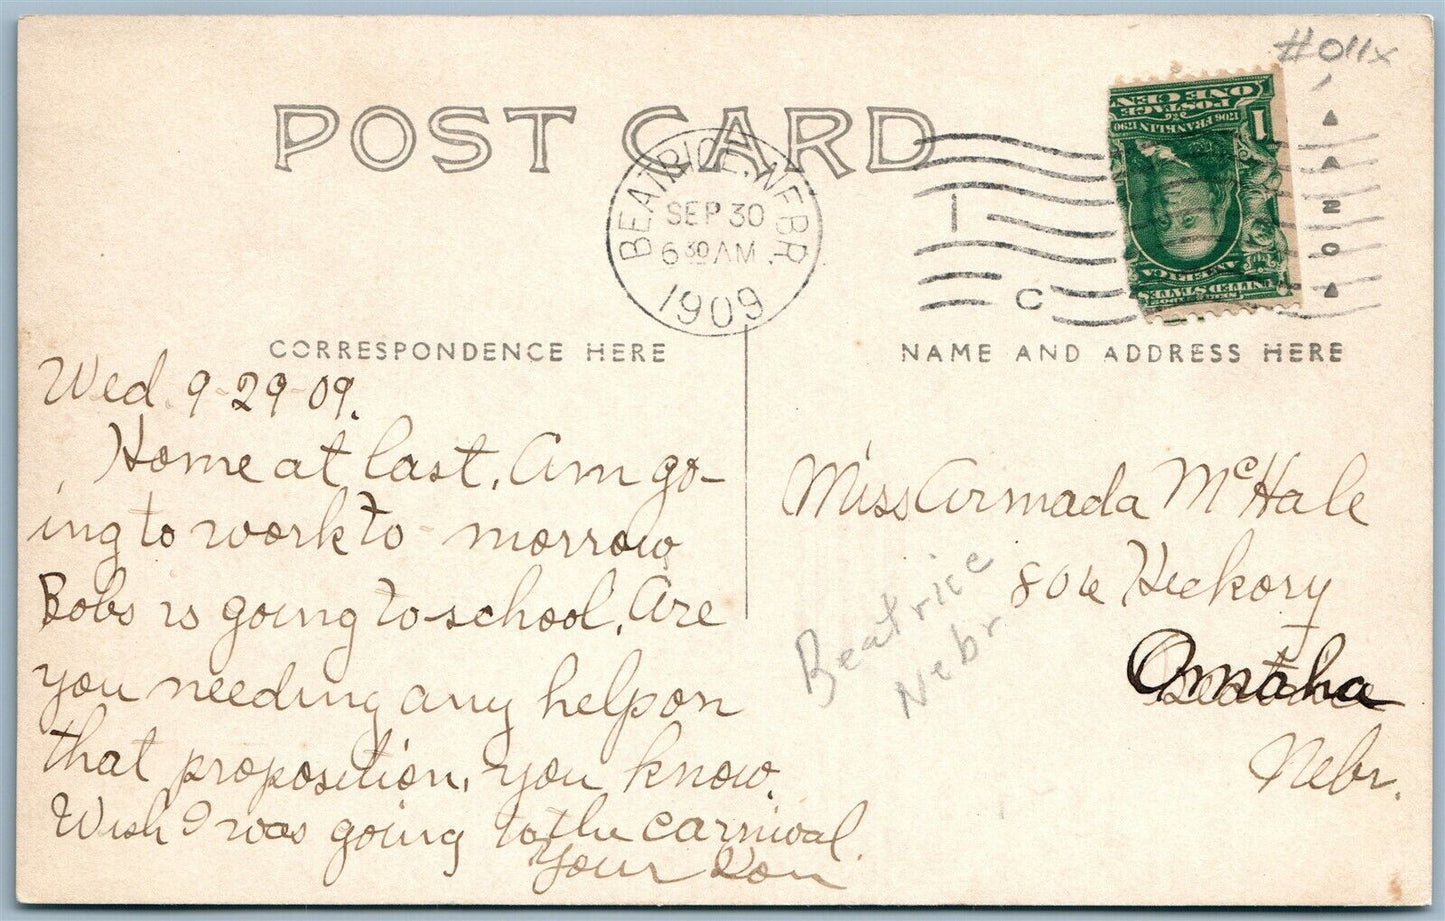 #011x
POST CARD
BEATRICE, NEBR.
SEP 30
6 30 AM
1909
1
C
ONE CENT
POSTAGE
1706 FRANKLIN 1790
1
UNITED STATES
AMERICA
CORRESPONDENCE HERE
NAME AND ADDRESS HERE
Wed. 9-29-09.
Home at last. Am go-
ing to work to-morrow
Bobs is going to school. Are
you needing any help on
that proposition, you know.
Wish I was going to the carnival.
Your
Miss Armada McHale
806 Hickory
Omaha
Nebr.
Beatrice
Nebr.